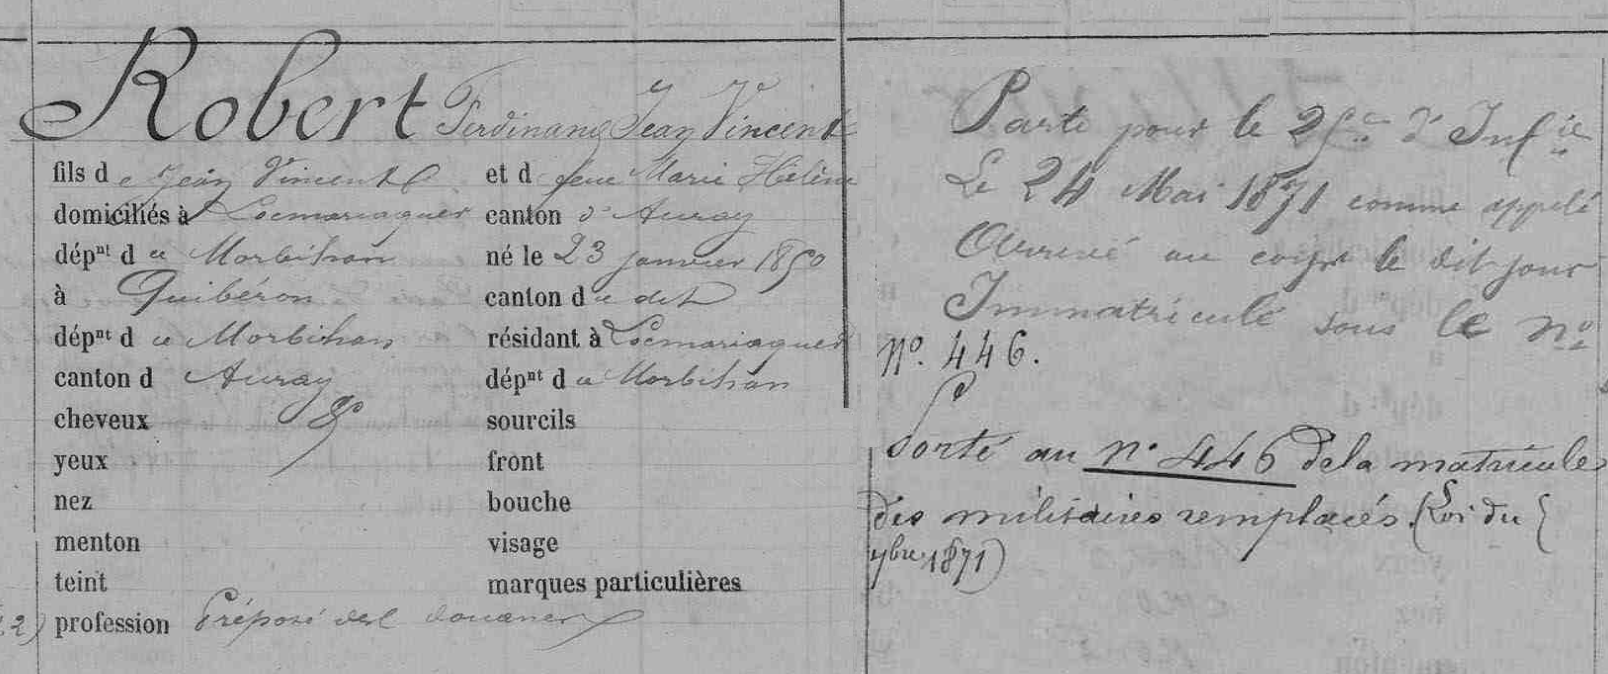 Robert Ferdinand Jean Vincent
fils de Jean Vincent et d feue Marie Hélène
domiciliés à Locmariaquer canton d'Auray
dépnt d u Morbihan né le 23 janvier 1850
à Quibéron canton d u dit
dépnt d u Morbihan résidant à Locmariaquer
canton d Auray dépnt d u Morbihan
cheveux sourcils
yeux front
nez bouche
menton visage
teint marques particulières
2) profession Préposé des douanes
Parti pour le 25e d'Infie
Le 24 Mai 1871 comme appelé
Arrivé au corps le dit jour
Immatriculé sous le no
No. 446.
Porté au no 446 de la matricule
des militaires remplacés (Loi du
7bre 1871)